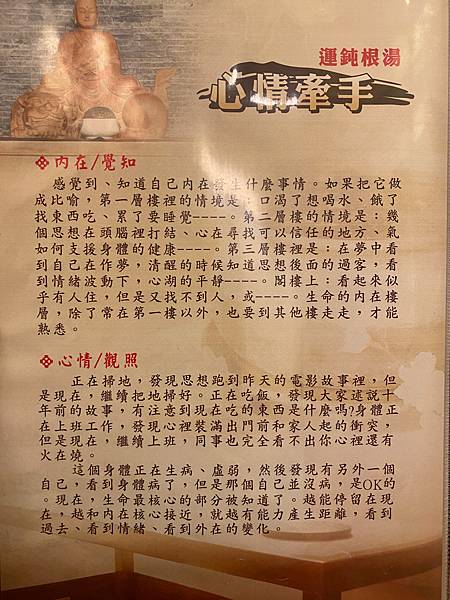 運鈍根湯
心情牽手
❖內在/覺知
感覺到、知道自己內在發生什麼事情。如果把它做
成比喻，第一層樓裡的情境是：口渴了想喝水、餓了
找東西吃、累了要睡覺----。第二層樓的情境是：幾
個思想在頭腦裡打結、心在尋找可以信任的地方、氣
如何支援身體的健康----。第三層樓裡是：在夢中看
到自己在作夢，清醒的時候知道思想後面的過客，看
到情緒波動下，心湖的平靜----。閣樓上：看起來似
乎有人住，但是又找不到人，或----。生命的內在樓
層，除了常在第一樓以外，也要到其他樓走走，才能
熟悉。
❖心情/觀照
正在掃地，發現思想跑到昨天的電影故事裡，但
是現在，繼續把地掃好。正在吃飯，發現大家述說十
年前的故事，有注意到現在吃的東西是什麼嗎?身體正
在上班工作，發現心裡裝滿出門前和家人起的衝突，
但是現在，繼續上班，同事也完全看不出你心裡還有
火在燒。
這個身體正在生病、虛弱，然後發現有另外一個
自己，看到身體病了，但是那個自己並沒病，是OK的
。現在，生命最核心的部分被知道了。越能停留在現
在，越和內在核心接近，就越有能力產生距離，看到
過去、看到情緒、看到外在的變化。